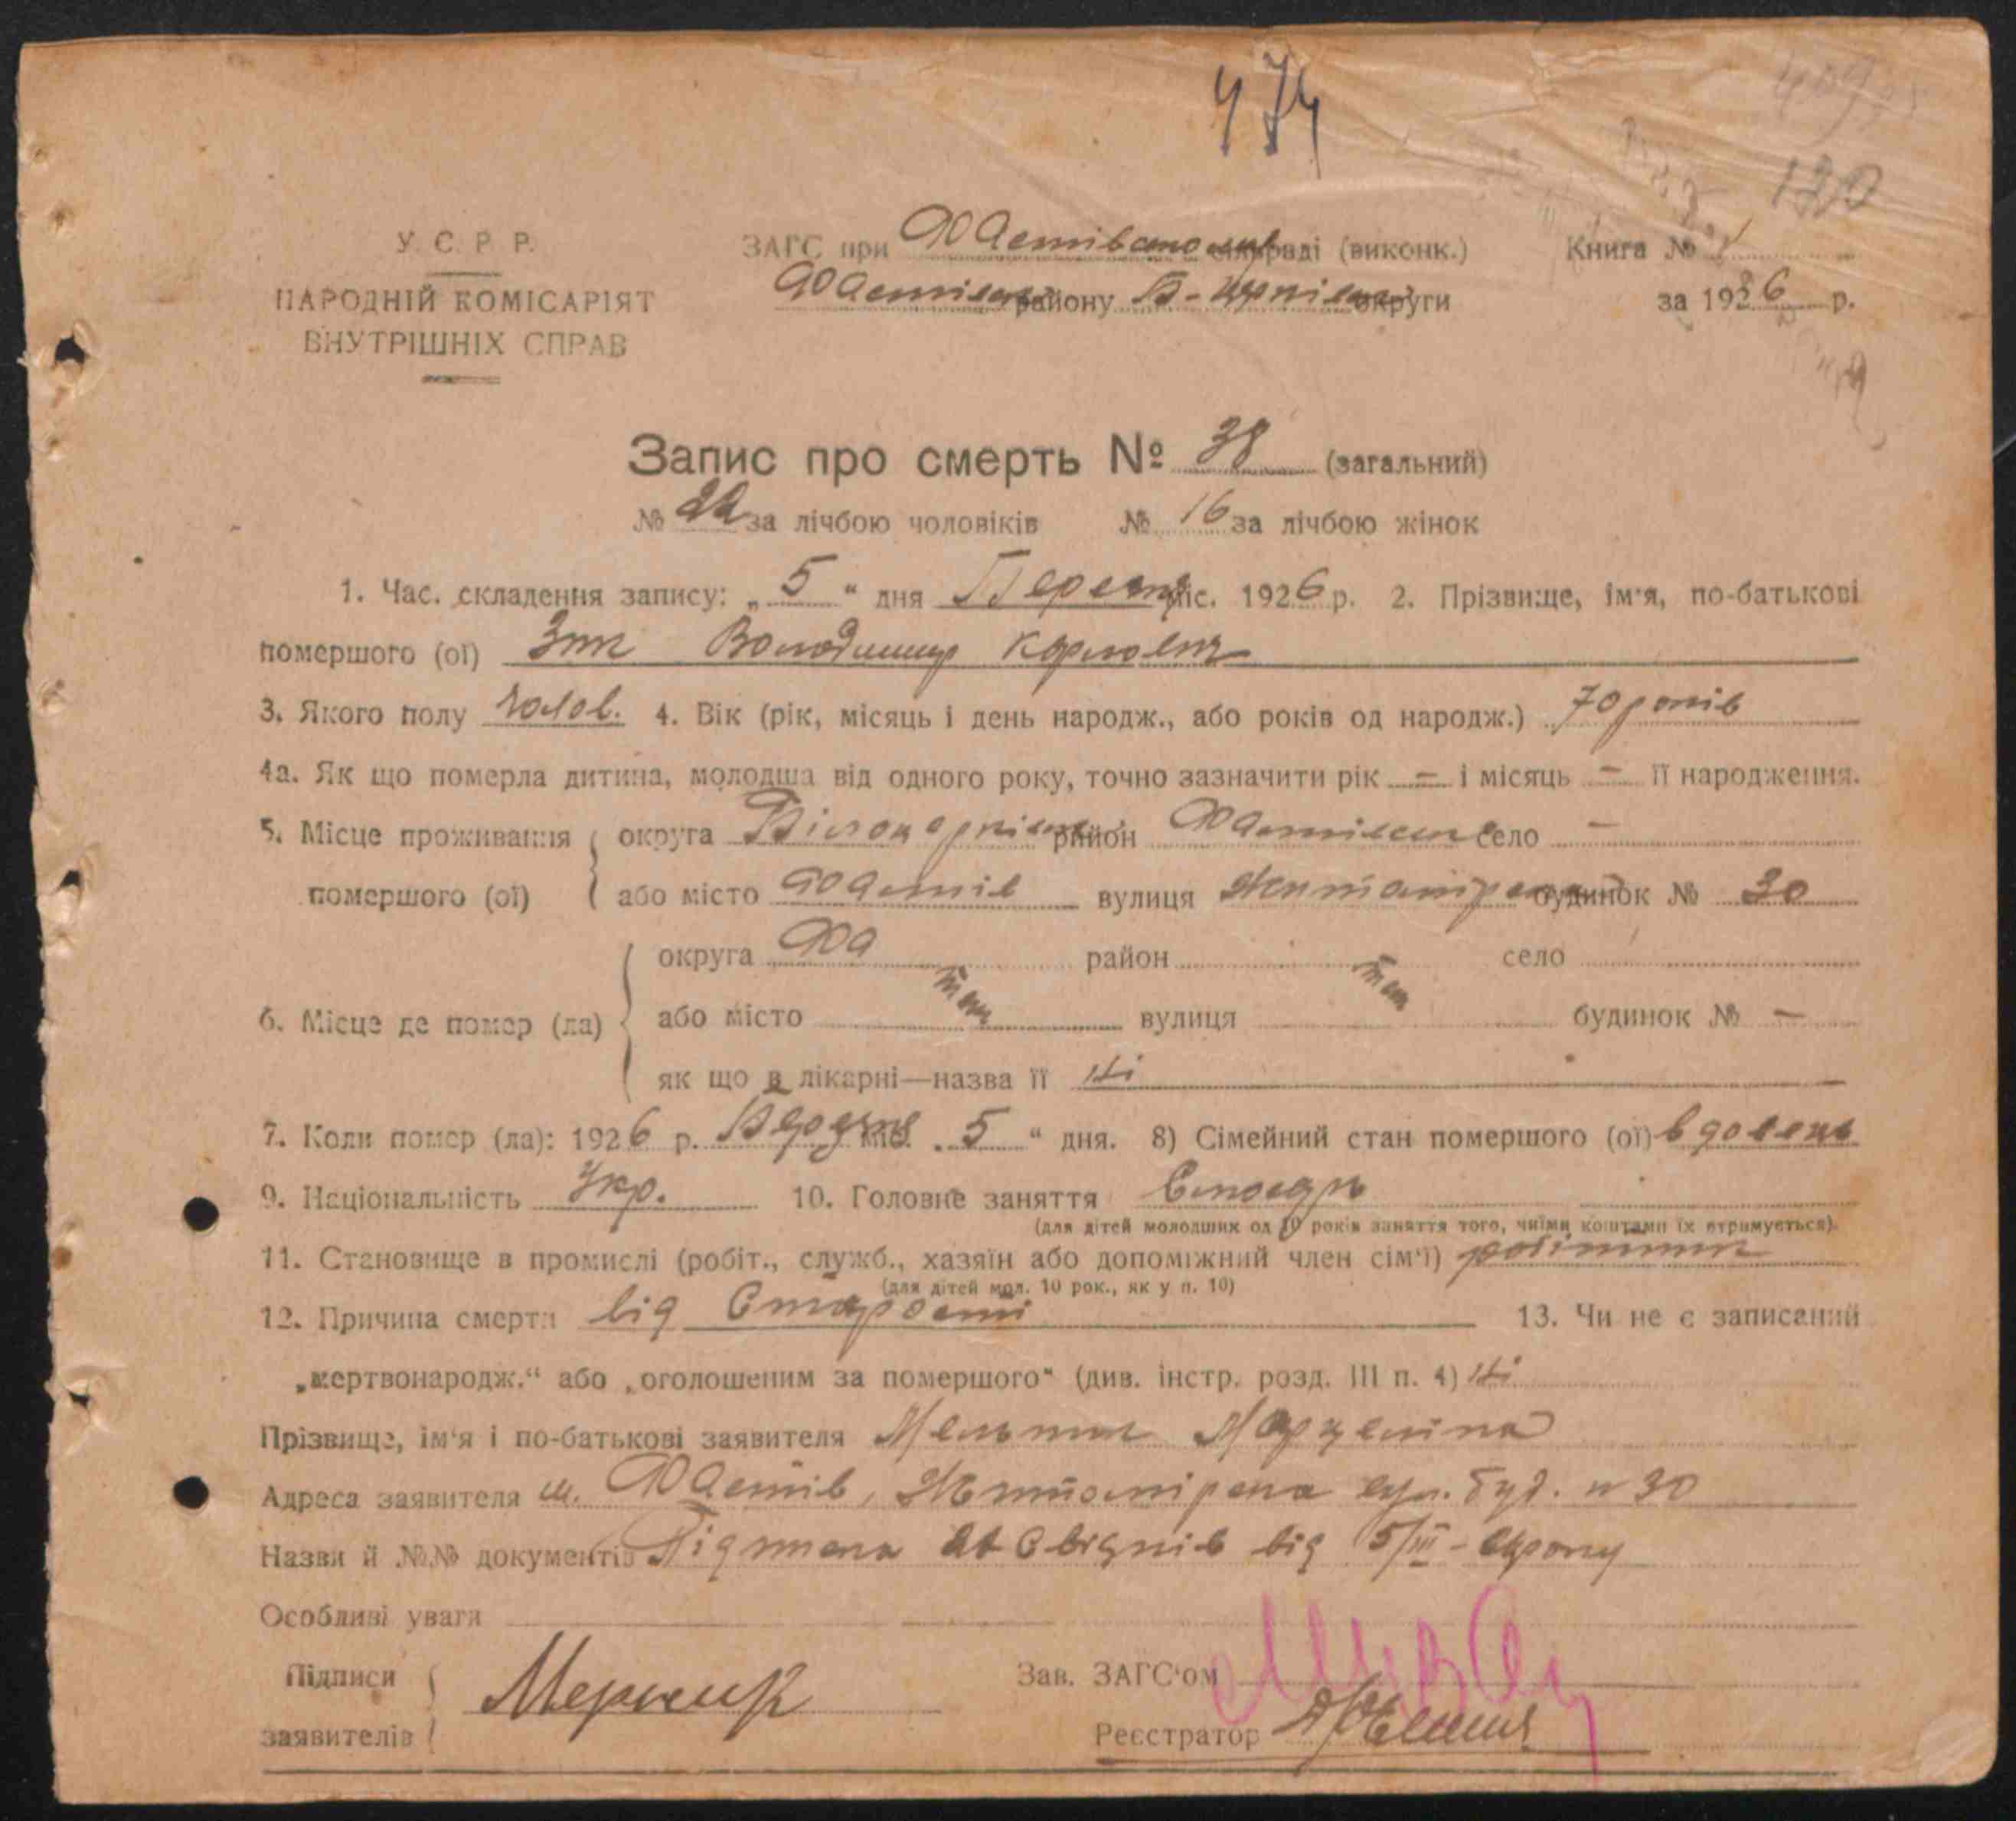 474
120
У. С. Р. Р.
НАРОДНІЙ КОМІСАРІЯТ
ВНУТРІШНІХ СПРАВ
ЗАГС при сільраді (виконк.)
району Б- округи
Книга №
за 1926 р.
Запис про смерть № 38 (загальний)
№ 22 за лічбою чоловіків № 16 за лічбою жінок
1. Час. складення запису: „ 5 “ дня міс. 1926 р. 2. Прізвище, ім'я, по-батькові
помершого (ої) Володимир
3. Якого полу чолов. 4. Вік (рік, місяць і день народж., або років од народж.) 70 років
4а. Як що померла дитина, молодша від одного року, точно зазначити рік – і місяць – її народження.
5. Місце проживання округа район село –
помершого (ої) або місто Фастів вулиця будинок № 30
6. Місце де помер (ла)
округа район село
або місто там вулиця там будинок № –
як що в лікарні—назва її Ні
7. Коли помер (ла): 1926 р. міс. „ 5 “ дня. 8) Сімейний стан помершого (ої) вдовець
9. Національність Укр. 10. Головне заняття Столяр
(для дітей молодших од 10 років заняття того, чиїми коштами їх втримується).
11. Становище в промислі (робіт., служб., хазяїн або допоміжний член сім'ї) робітник
(для дітей мол. 10 рок., як у п. 10)
12. Причина смерти від Старости 13. Чи не є записаний
„мертвонародж.“ або „оголошеним за помершого“ (див. інстр. розд. III п. 4) Ні
Прізвище, ім'я і по-батькові заявителя Марцеліна
Адреса заявителя м. Фастів, вул. буд. № 30
Назви й №№ документів Підписка свідків від 5/III-
Особливі уваги
Підписи
заявителів
Зав. ЗАГС'ом
Реєстратор